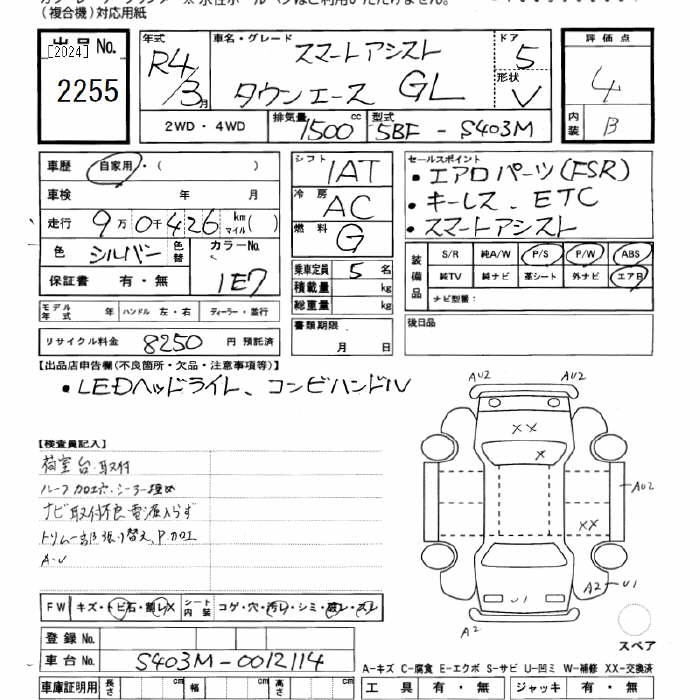 (複合機)対応用紙
出品No.
[2024]
2255
年式
R4/3月
車名・グレード
スマートアシスト
タウンエース GL
ドア
5
形状
V
評価点
4
内装
B
2WD・4WD
排気量
1500cc
型式
5BF-S403M
車歴
自家用・( )
車検 年 月
走行
9万0千426 km マイル( )
色
シルバー
色替
カラーNo.
1E7
保証書 有・無
シフト
IAT
冷房
AC
燃料
G
乗車定員 5 名
積載量 kg
総重量 kg
書類期限
月 日
セールスポイント
・エアロパーツ(FSR)
・キーレス、ETC
・スマートアシスト
装備品
S/R 純A/W P/S P/W ABS
純TV 純ナビ 革シート 外ナビ エアB
ナビ型番:
後日品
モデル年式 年 ハンドル 左・右 ディーラー・並行
リサイクル料金 8250 円 預託済
【出品店申告欄(不良箇所・欠品・注意事項等)】
・LEDヘッドライト、コンビハンドル
【検査員記入】
荷室台取付
ルーフ加工穴シーラー埋め
ナビ取付不良電源入らず
トリム一部張り替え、P加工
A・U
AU2 AU2
XX
X
AU2
XX
A2 U1
U1
A2
スペア
FW キズ・トビ石・割レX
シート内装 コゲ・穴・汚レ・シミ・破レ・スレ
登録No.
車台No. S403M-0012114
A-キズ C-腐食 E-エクボ S-サビ U-凹ミ W-補修 XX-交換済
車庫証明用 長さ cm 幅 cm 高さ cm
工具 有・無 ジャッキ 有・無